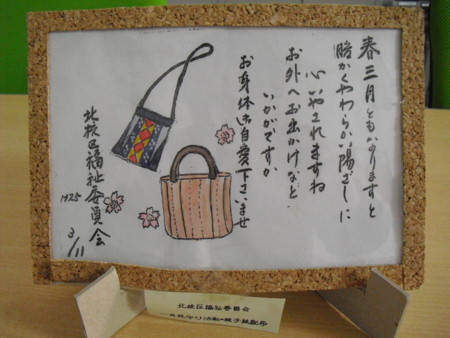 春三月ともなりますと
暖かくやわらかい陽ざしに
心いやされますね
お外へお出かけなど
いかがですか
お身体御自愛下さいませ
北枝区福祉委員会
1425
3/11
北枝区福祉委員会
絵手紙配布